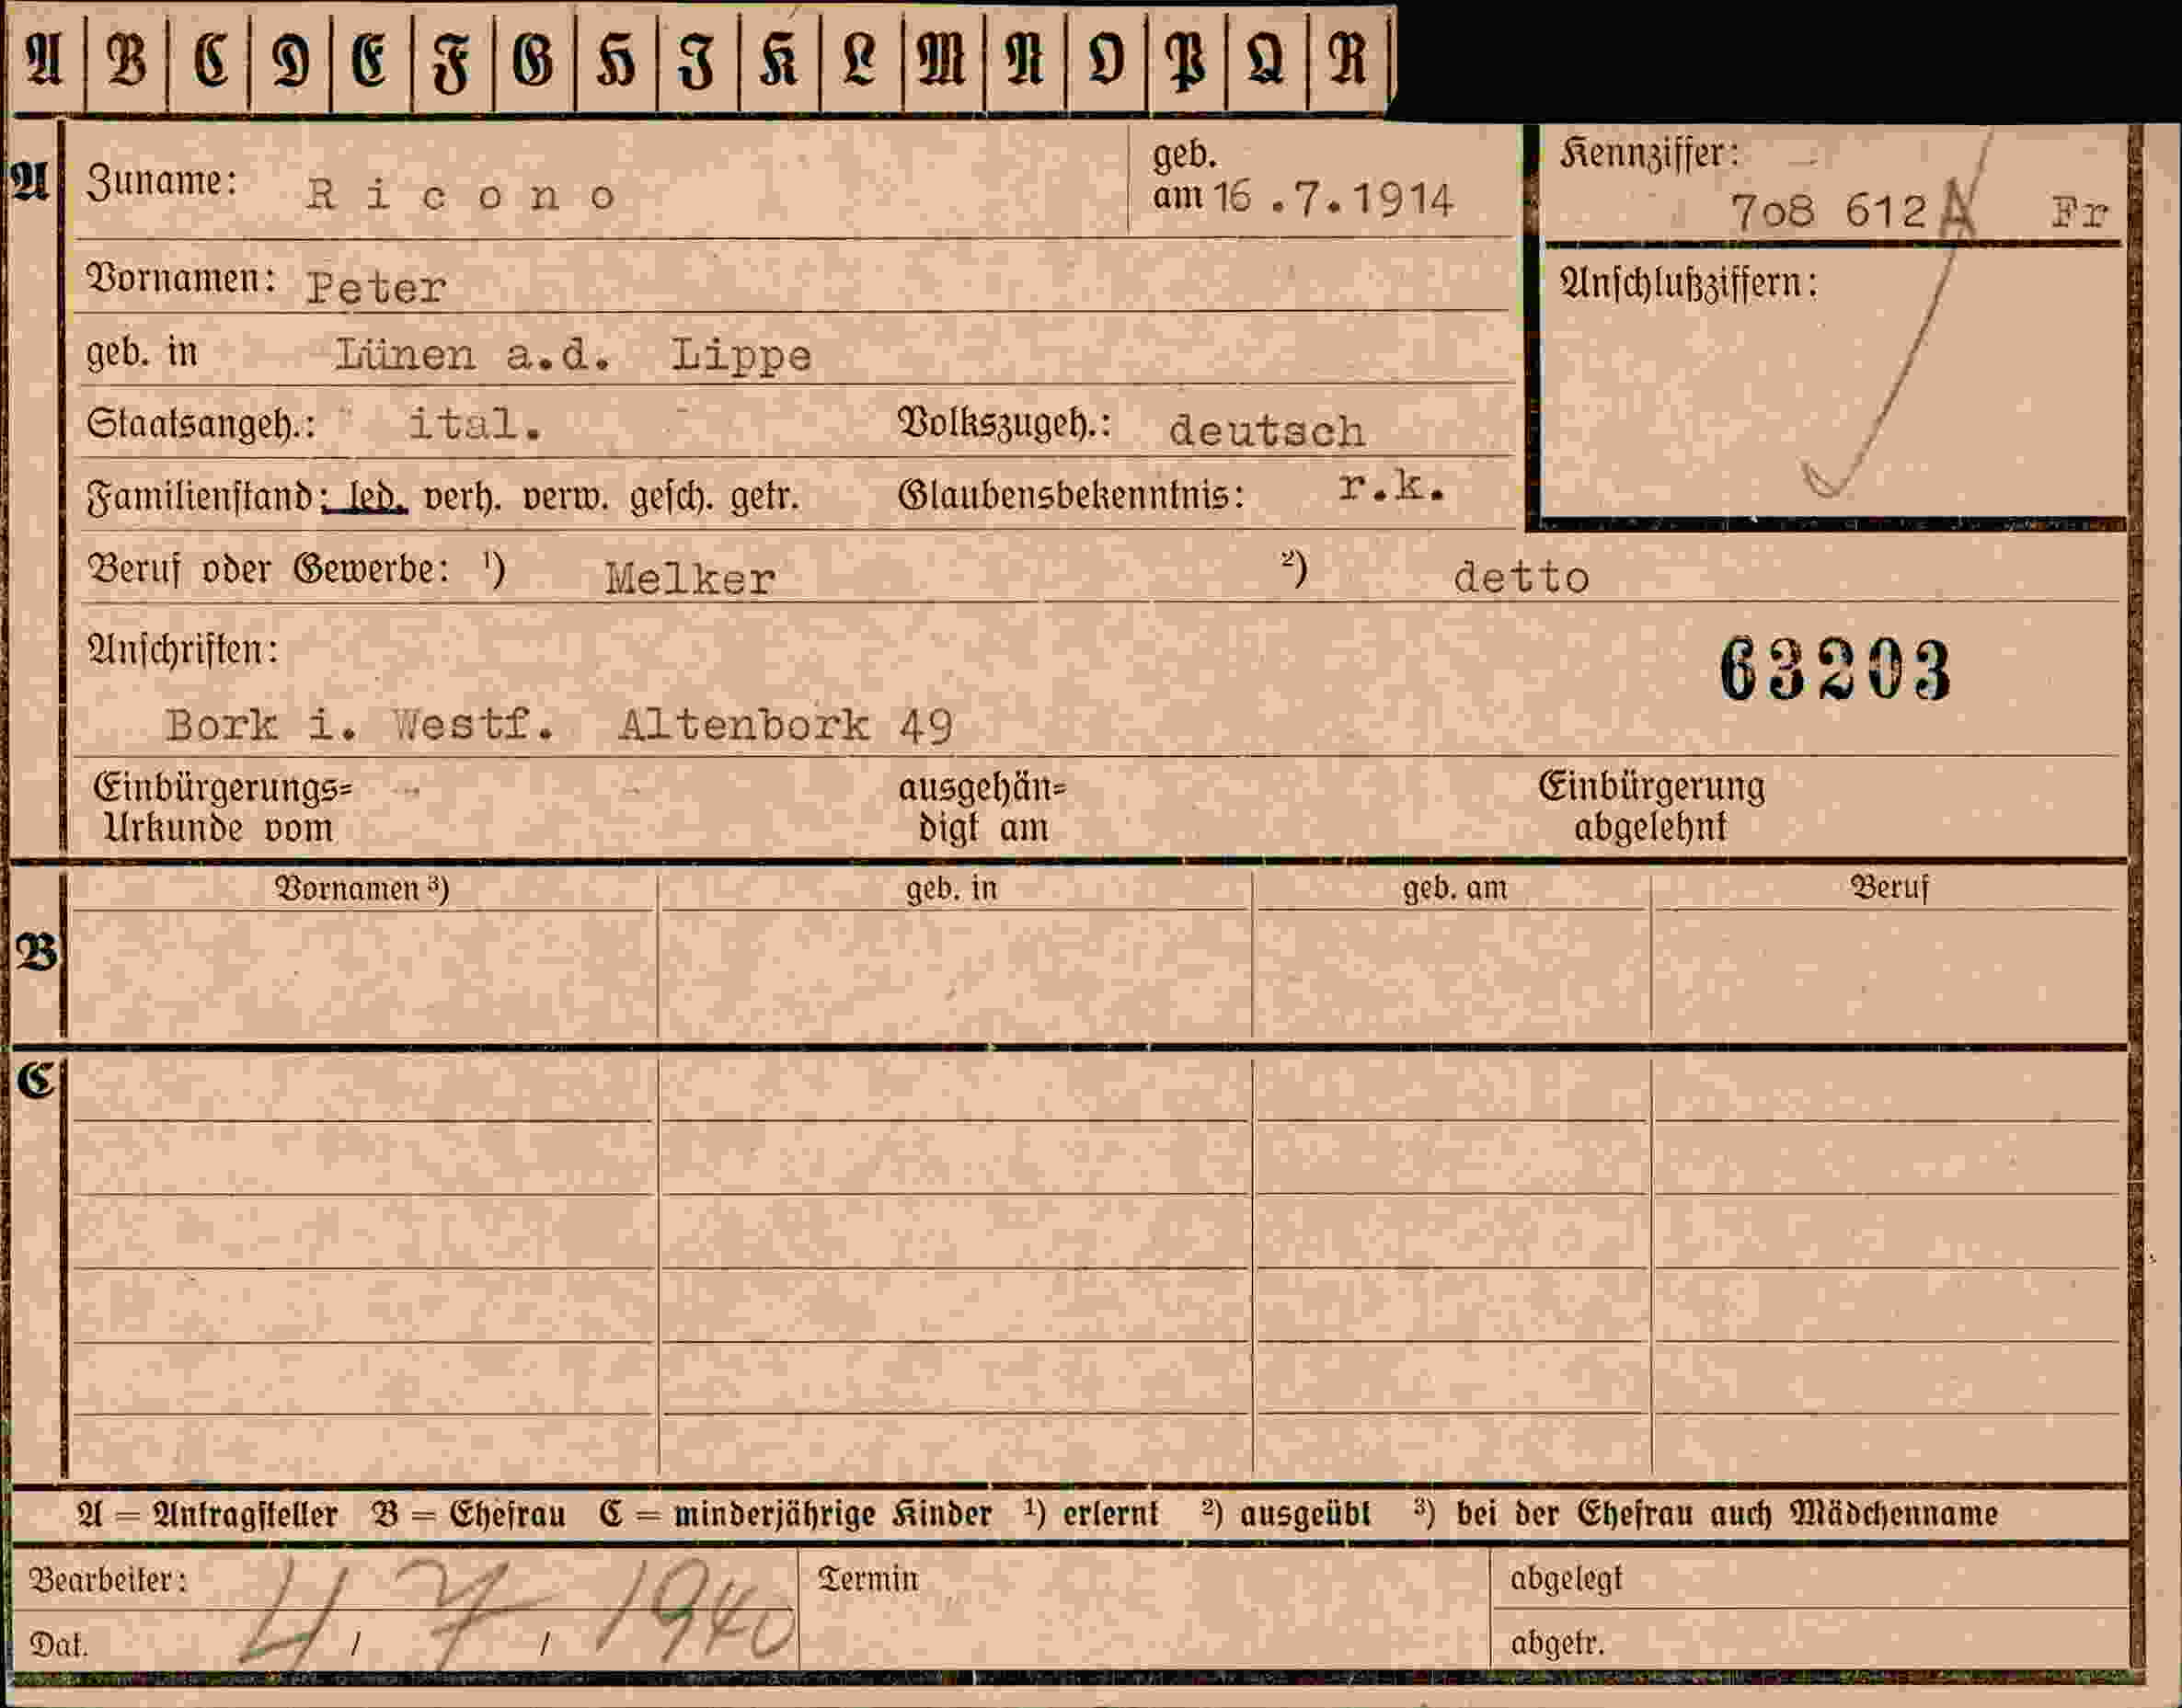 A B C D E F G H I K L M N O P Q R
A Zuname: Ricono geb. am 16.7.1914
Kennziffer: 708 612 A Fr
Vornamen: Peter
Anschlußziffern:
geb. in Lünen a.d. Lippe
Staatsangeh.: ital. Volkszugeh.: deutsch
Familienstand: led. verh. verw. gesch. getr. Glaubensbekenntnis: r.k.
Beruf oder Gewerbe: ¹) Melker ²) detto
Anschriften: 63203
Bork i. Westf. Altenbork 49
Einbürgerungs= ausgehän= Einbürgerung
Urkunde vom digt am abgelehnt
Vornamen ³) geb. in geb. am Beruf
B
C
A = Antragsteller B = Ehefrau C = minderjährige Kinder ¹) erlernt ²) ausgeübt ³) bei der Ehefrau auch Mädchenname
Bearbeiter: Termin abgelegt
Dat. 4 / 7 / 1940 abgetr.